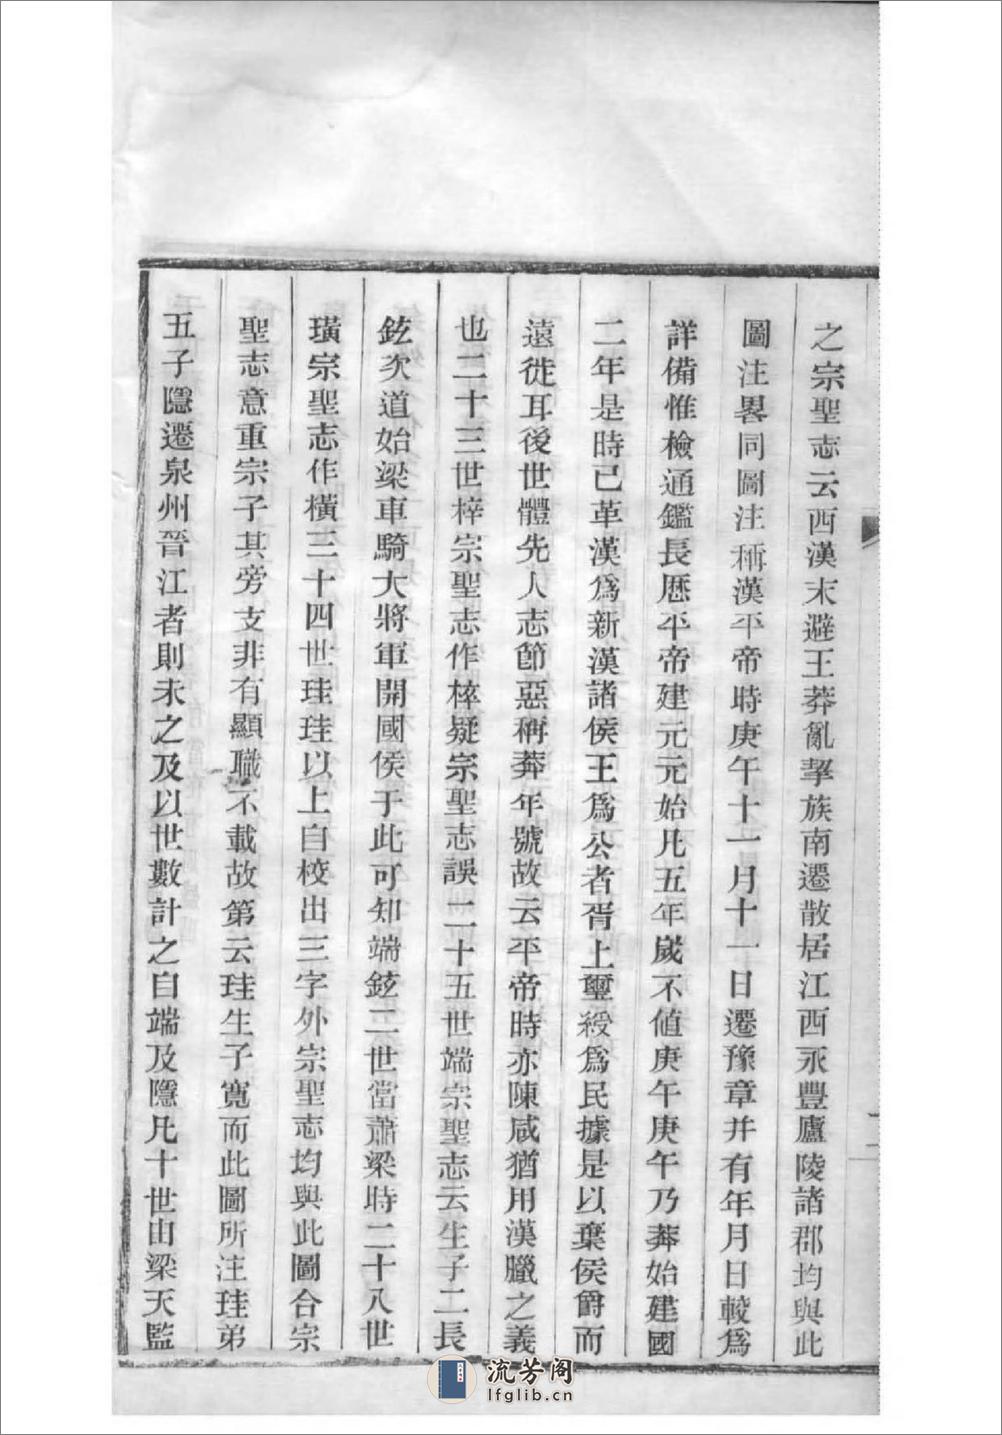 之宗聖志云西漢末避王莽亂挈族南遷散居江西永豐廬陵諸郡均與此
圖注畧同圖注稱漢平帝時庚午十一月十一日遷豫章并有年月日較爲
詳備惟檢通鑑長厯平帝建元元始凡五年嵗不值庚午庚午乃莽始建國
二年是時已革漢爲新漢諸侯王爲公者胥上璽綬爲民據是以棄侯爵而
遠徙耳後世體先人志節惡稱莽年號故云平帝時亦陳咸猶用漢臘之義
也二十三世梓宗聖志作榟疑宗聖志誤二十五世端宗聖志云生子二長
鉉次道始梁車騎大將軍開國侯于此可知端鉉二世當蕭梁時二十八世
璜宗聖志作横三十四世珪珪以上自校出三字外宗聖志均與此圖合宗
聖志意重宗子其旁支非有顯職不載故第云珪生子寬而此圖所注珪弟
五子隱遷泉州晉江者則未之及以世數計之自端及隱凡十世由梁天監
流芳阁
lfglib.cn